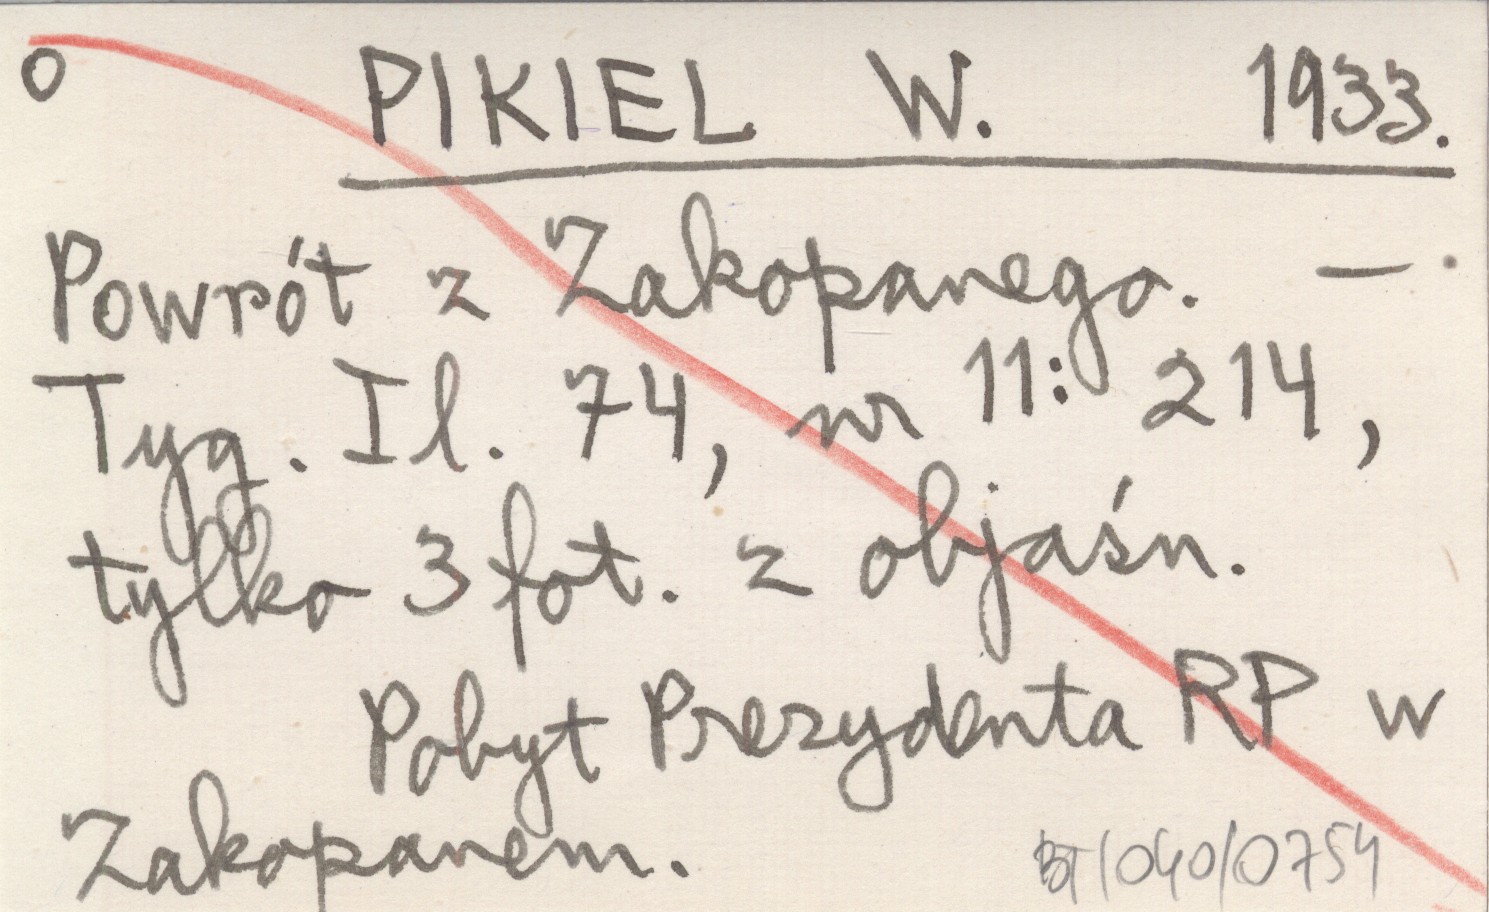 o PIKIEL W. 1933.
Powrót z Zakopanego. —.
Tyg. Il. 74, nr 11: 214,
tylko 3 fot. z objaśn.
Pobyt Prezydenta RP w
Zakopanem.
BT/040/0754